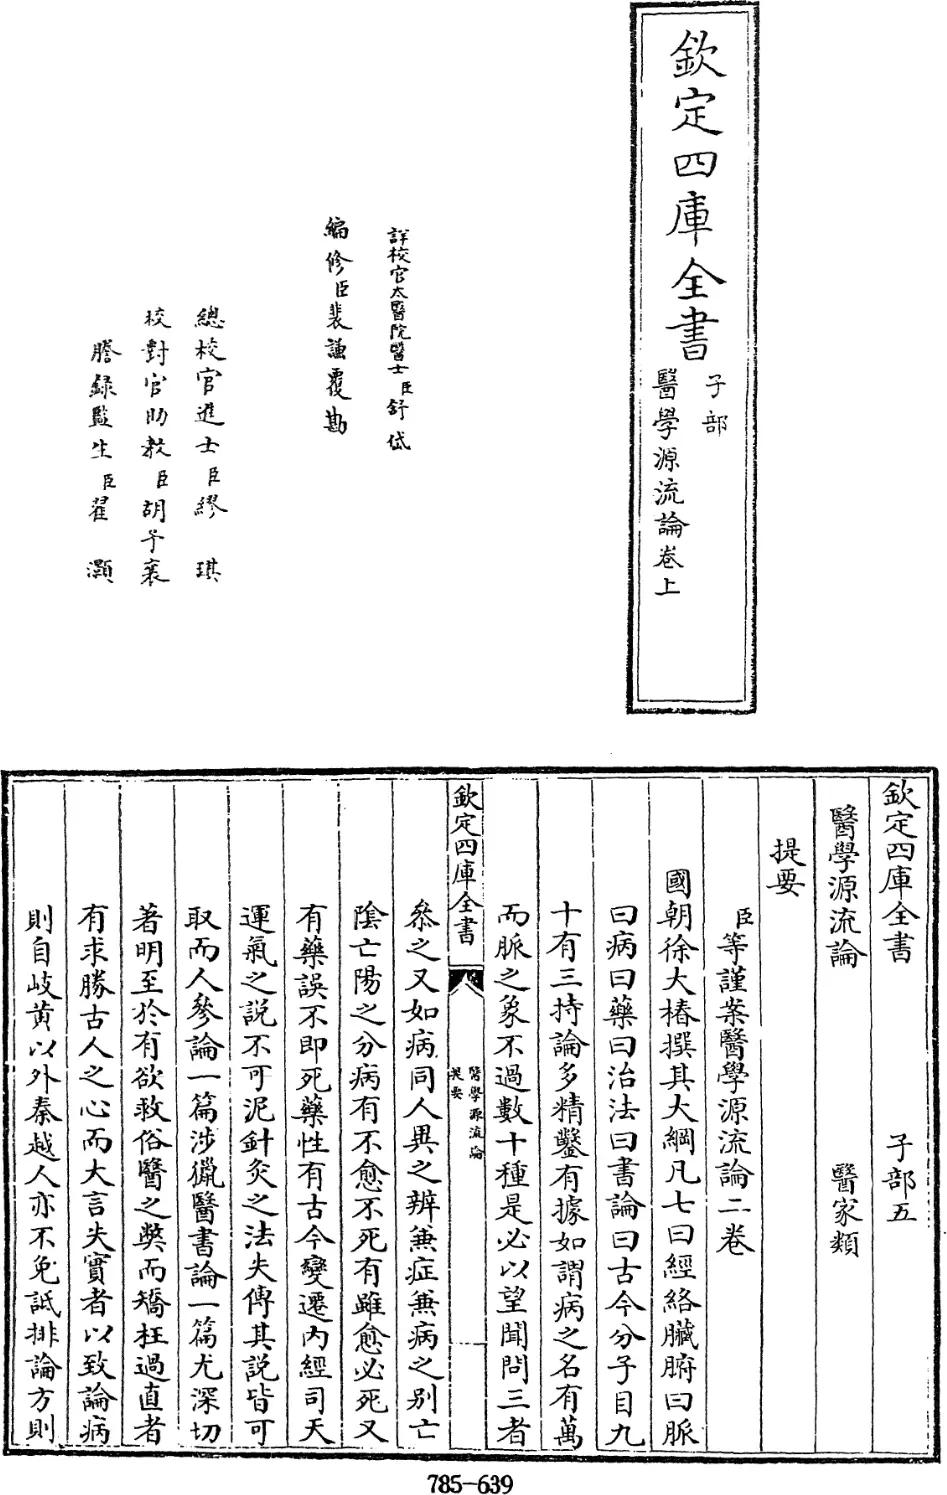 欽定四庫全書
子部
醫學源流論卷上
詳校官太醫院醫士臣舒岱
編修臣裴謙覆勘
總校官進士臣繆琪
校對官助教臣胡予襄
謄錄監生臣翟灝
欽定四庫全書 子部五
醫學源流論 醫家類
提要
臣等謹案醫學源流論二卷
國朝徐大椿撰其大綱凡七曰經絡臟腑曰脈
曰病曰藥曰治法曰書論曰古今分子目九
十有三持論多精鑿有據如謂病之名有萬
而脈之象不過數十種是必以望聞問三者
欽定四庫全書
醫學源流論
提要
叅之又如病同人異之辨兼症兼病之别亡
陰亡陽之分病有不愈不死有雖愈必死又
有藥誤不即死藥性有古今變遷内經司天
運氣之説不可泥針灸之法失傳其説皆可
取而人參論一篇涉獵醫書論一篇尤深切
著明至於有欲救俗醫之獘而矯枉過直者
有求勝古人之心而大言失實者以致論病
則自岐黄以外秦越人亦不免詆排論方則
785-639